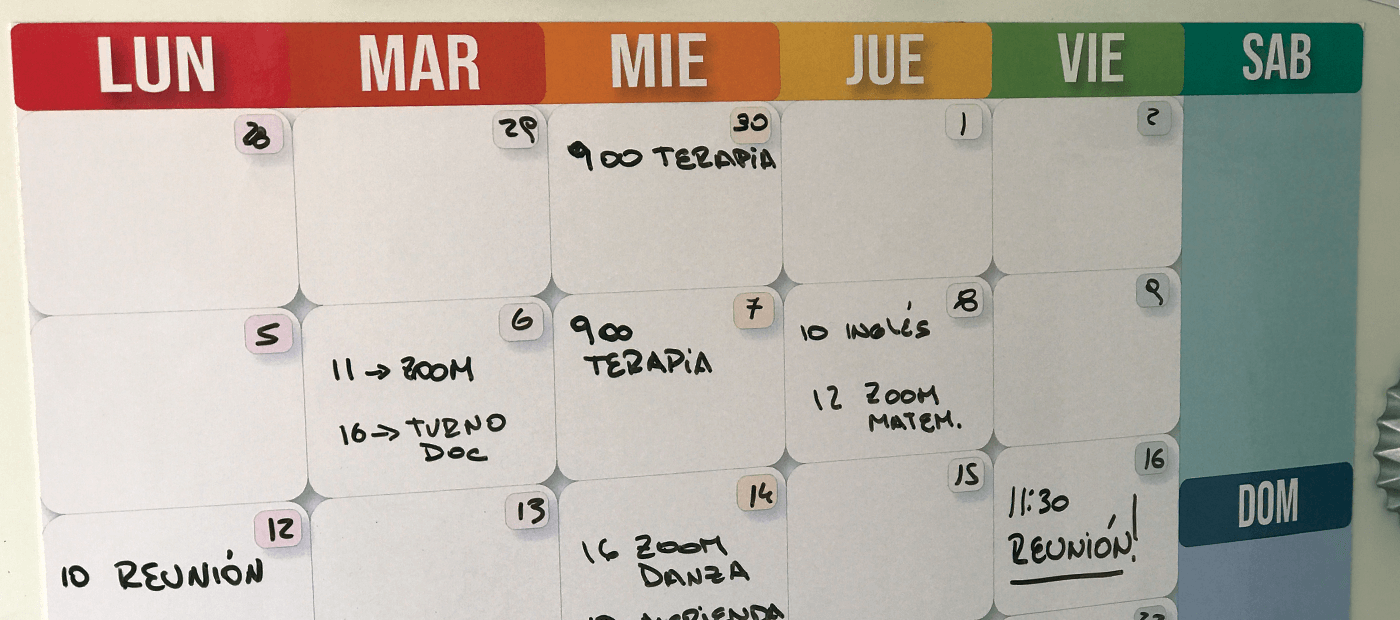 LUN MAR MIE JUE VIE SAB
28 29 30 1 2
900 TERAPIA
5 6 7 8 9
11 → ZOOM
16 → TURNO
DOC
900
TERAPIA
10 INGLÉS
12 ZOOM
MATEM.
12 13 14 15 16
10 REUNIÓN
16 ZOOM
DANZA
11:30
REUNIÓN!
DOM